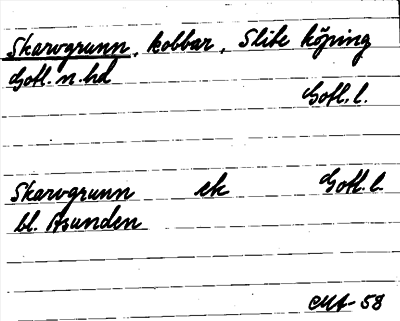 Skarvgrunn, kobbar, Slite köping
Gotl. n. hd
Gotl. l.
Skarvgrunn ek Gotl. l.
bl. Asunden
CMA-58